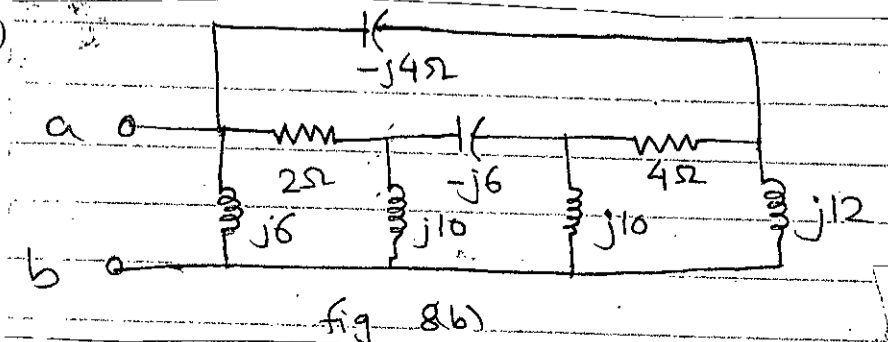 )
-j4Ω
a
2Ω
-j6
4Ω
j6
j10
j10
j12
b
fig 8(b)